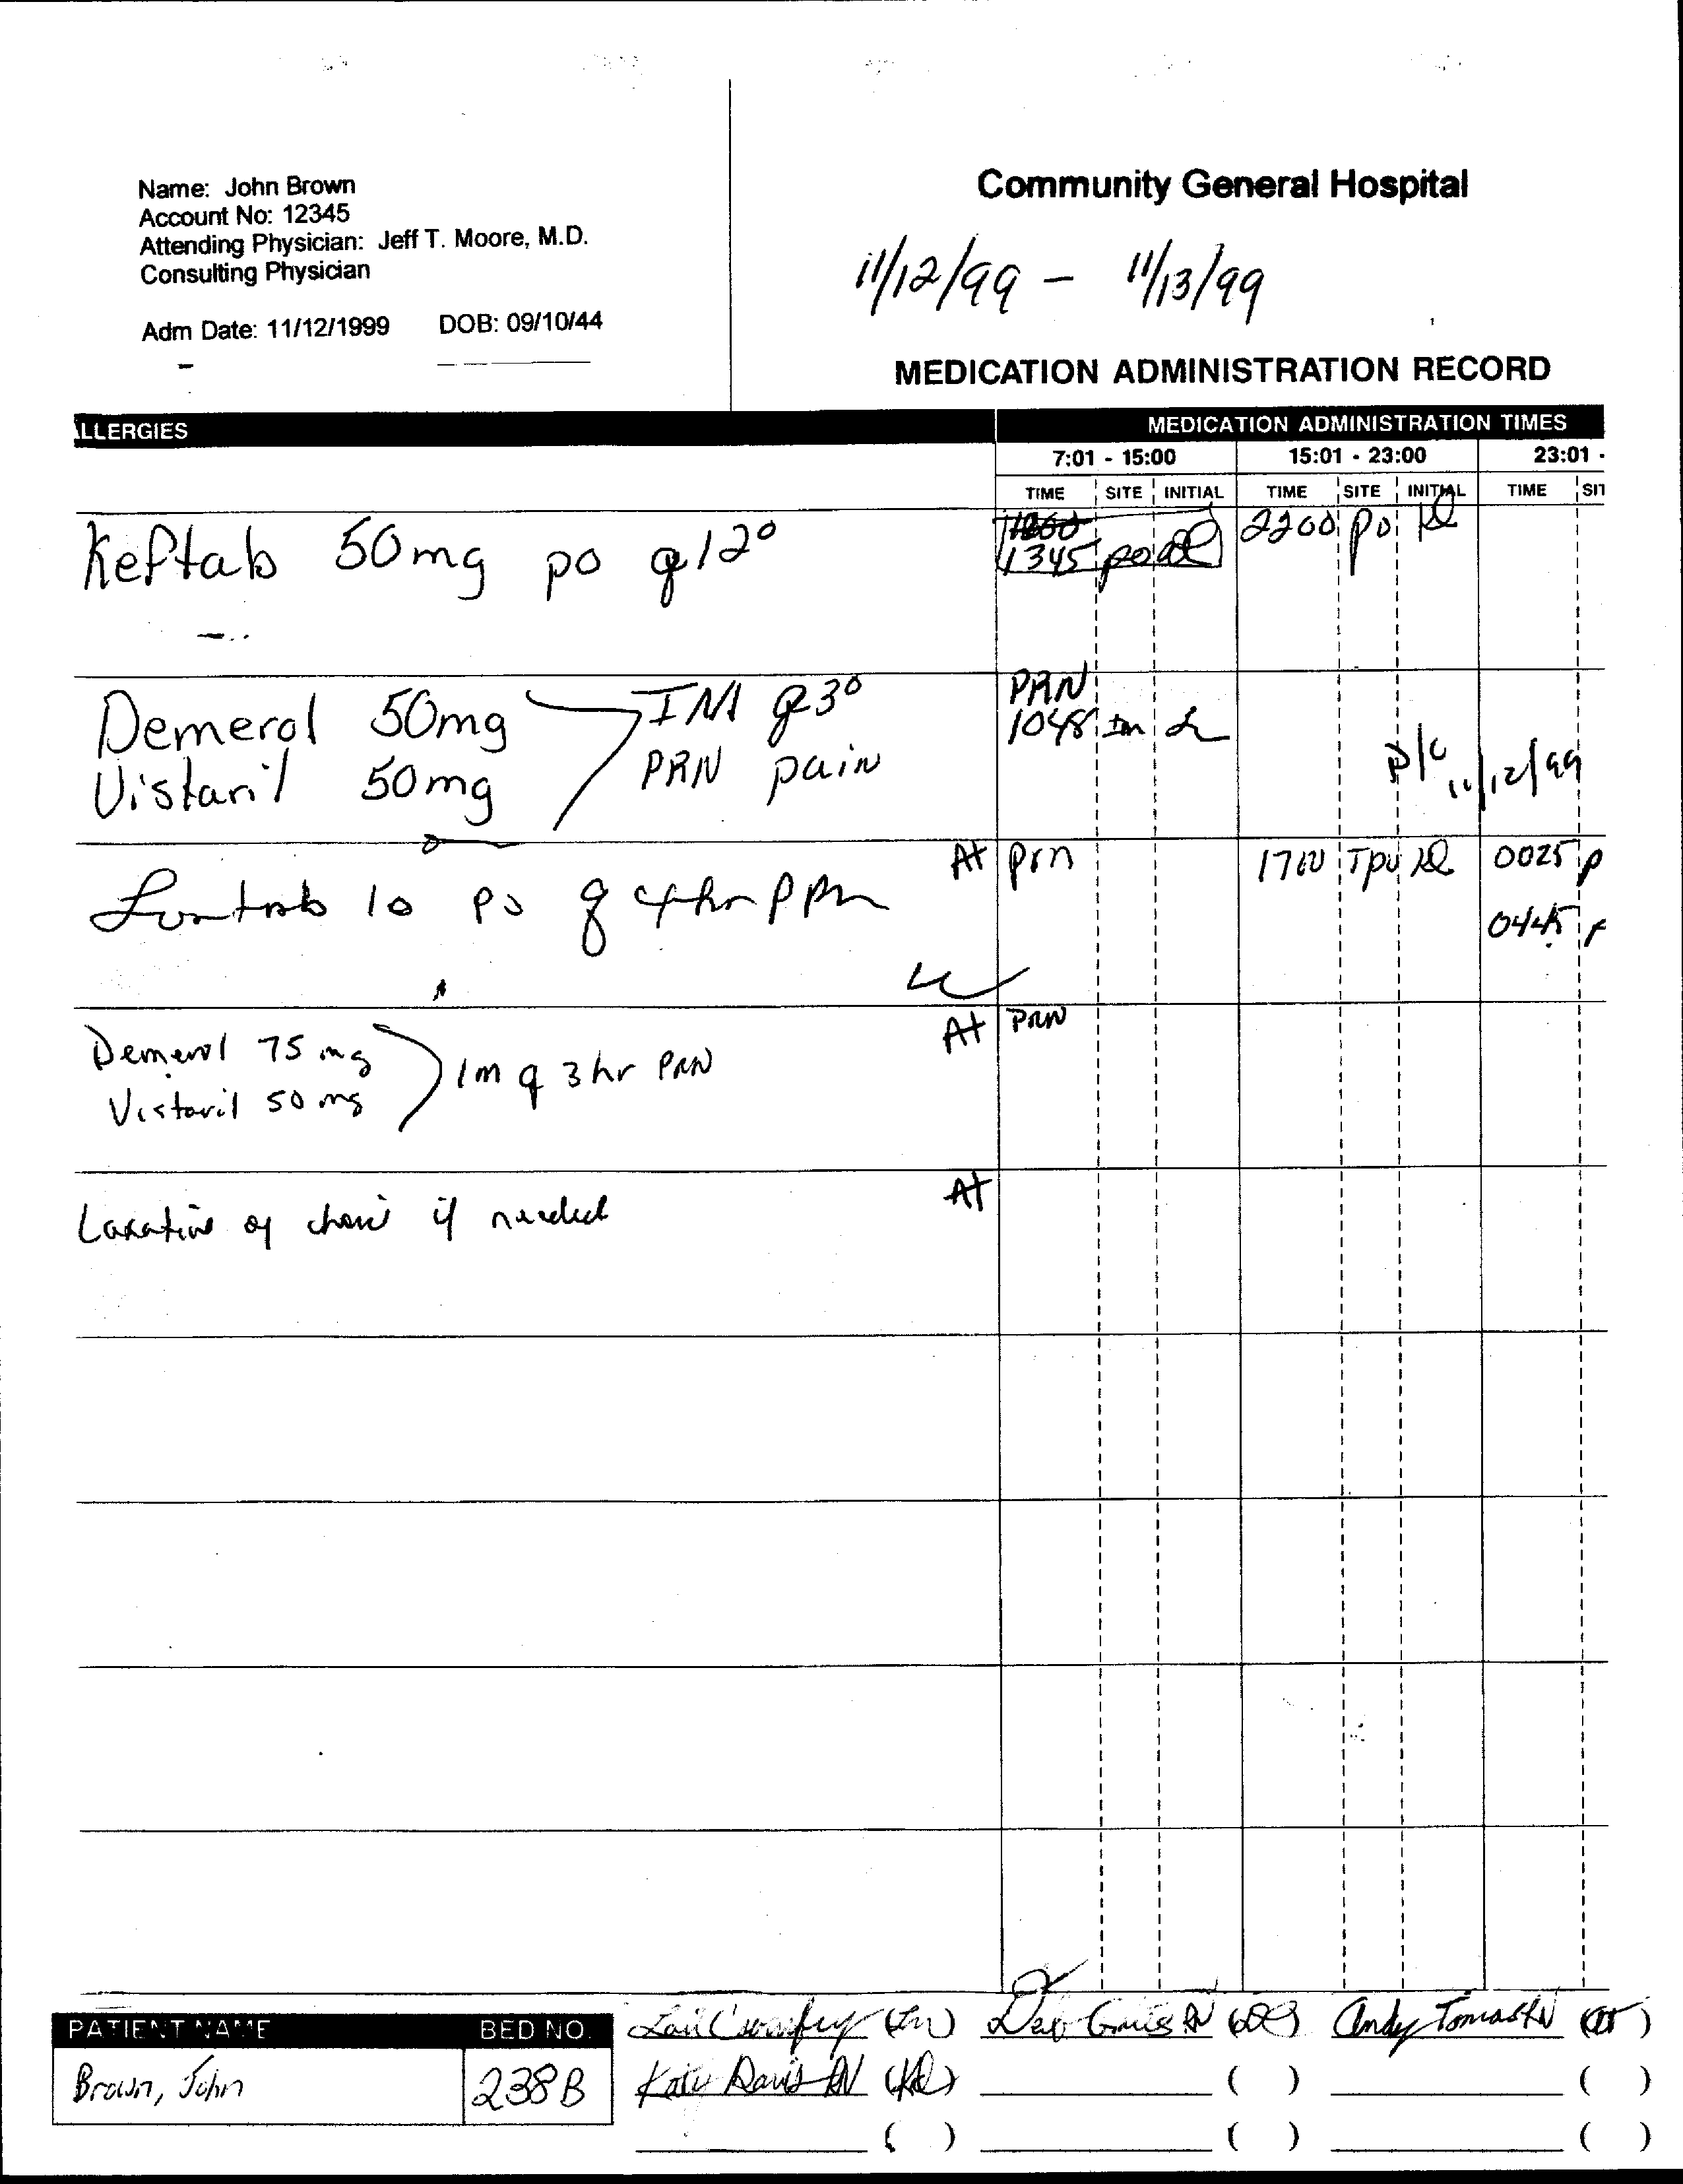 Name: John Brown
Account No: 12345
Attending Physician: Jeff T. Moore, M.D.
Consulting Physician
Adm Date: 11/12/1999 DOB: 09/10/44
Community General Hospital
11/12/99 - 11/13/99
MEDICATION ADMINISTRATION RECORD
LLERGIES
MEDICATION ADMINISTRATION TIMES
7:01 - 15:00 15:01 - 23:00 23:01 -
TIME SITE INITIAL TIME SITE INITIAL TIME SIT
Keftab 50mg po q12°
1345 po 2200 po KD
Demerol 50mg IM q3°
Vistaril 50mg PRN pain
PRN
1048 IM
D/C 11/12/99
Lortab 10 po q 4hr prn
At prn 1700 po KD 0025 p
0445 p
Demerol 75 mg 1m q 3hr PRN
Vistaril 50 mg
At PRN
Laxative of choice if needed At
PATIENT NAME BED NO.
Brown, John 238B
Deb RN Andy Tomas RN (AT)
Katy Davis RN (KD) ( ) ( )
( ) ( ) ( )